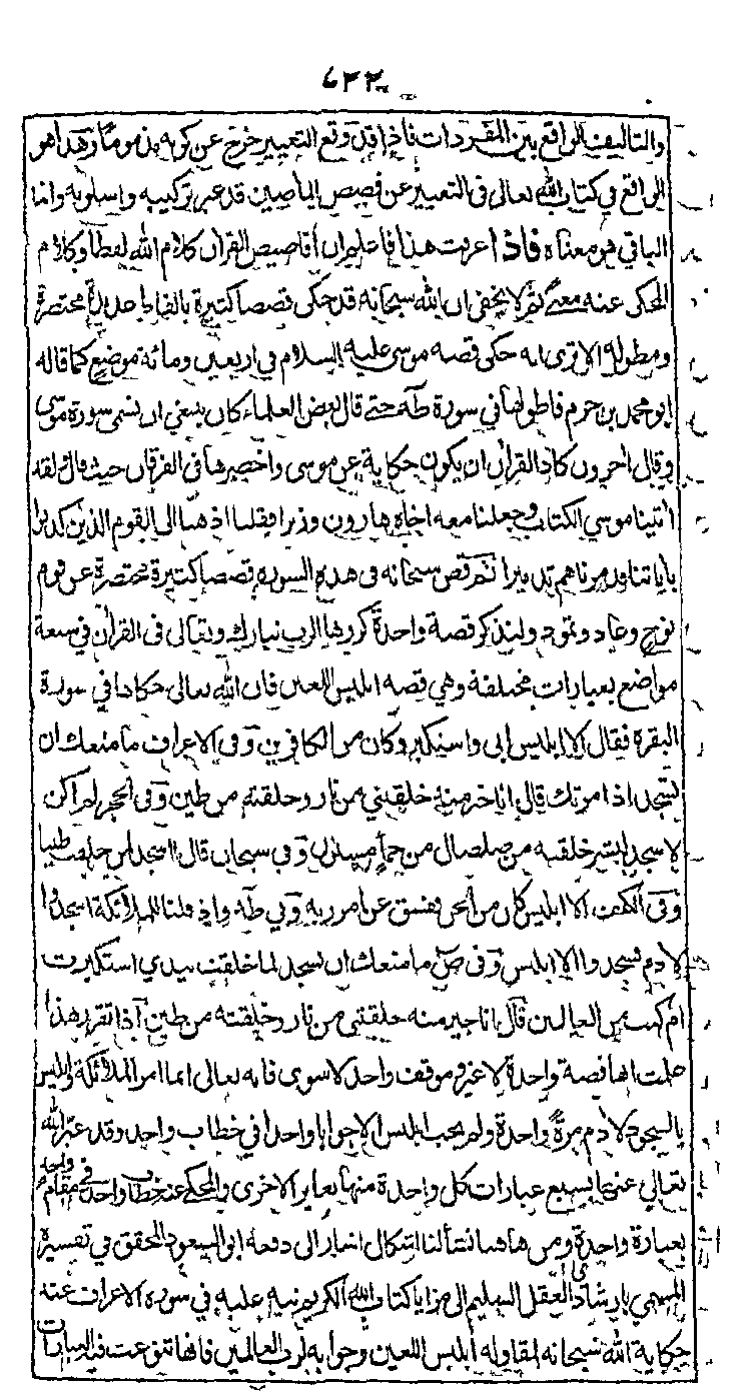 ٦٢٢
والتاليف الواقع بين المفردات فاذا قد وقع التعبير خرج عن كونه مذموما وهذا هو
الواقع في كتاب الله تعالى في التعبير عن قصص الماضين قد عبر تركيبه واسلوبه وانما
الباقي هو معناه فاذا عرفت هذا فاعلم ان أقاصيص القرآن كلام الله لفظا وكلام
المحكى عنه معنى ثم لا يخفى ان الله سبحانه قد حكى قصصا كثيرة بالفاظ عديدة مختصرة
ومطولة الا ترى انه حكى قصه موسى عليه السلام في اربعين ومائة موضع كما قاله
ابو محمد بن حزم فاطولها في سورة طه حتى قال بعض العلماء كان ينبغي ان تسمى سورة موسى
وقال اخرون كاد القرآن ان يكون حكاية عن موسى واخصرها في الفرقان حيث قال لقد
اتينا موسى الكتاب وجعلنا معه اخاه هارون وزيرا فقلنا اذهبا الى القوم الذين كذبوا
باياتنا فدمرناهم تدميرا ثم قص سبحانه في هذه السورة قصصا كثيرة مختصرة عن قوم
نوح وعاد وثمود ولنذكر قصة واحدة كررها الرب تبارك وتعالى فى القرآن في سبعة
مواضع بعبارات مختلفة وهي قصه ابليس اللعين فان الله تعالى حكاها في سورة
البقرة فقال الا ابليس ابى واستكبر وكان من الكافرين وفى الاعراف ما منعك ان
تسجد اذ امرتك قال انا خير منه خلقتني من نار وخلقته من طين وفى الحجر لم اكن
لاسجد لبشر خلقته من صلصال من حمأ مسنون وفى سبحان قال ااسجد لمن خلقت طينا
وفى الكهف الا ابليس كان من الجن ففسق عن امر ربه وفي طه واذ قلنا للملائكة اسجدوا
لادم فسجدوا الا ابليس وفى ص ما منعك ان تسجد لما خلقت بيدي استكبرت
ام كنت من العالين قال انا خير منه خلقتني من نار وخلقته من طين اذا تقرر هذا
علمت انها قصة واحدة لا غير وموقف واحد لا سوى فانه تعالى انما امر الملائكة وابليس
بالسجود لادم مرة واحدة ولم يجب ابليس الا جوابا واحدا في خطاب واحد وقد عبر الله
تعالى عنها بسبع عبارات كل واحدة منها تغاير الاخرى والمحكى عنه خطاب واحد في مقام واحد
بعبارة واحدة ومن هاهنا نشأ لنا اشكال اشار الى دفعه ابو السعود المحقق في تفسيره
المسمى بارشاد العقل السليم الى مزايا كتاب الله الكريم نبه عليه في سورة الاعراف عند
حكاية الله سبحانه لمقاوله ابليس اللعين وجوابه لرب العالمين فانها تنوعت فيه العبارات